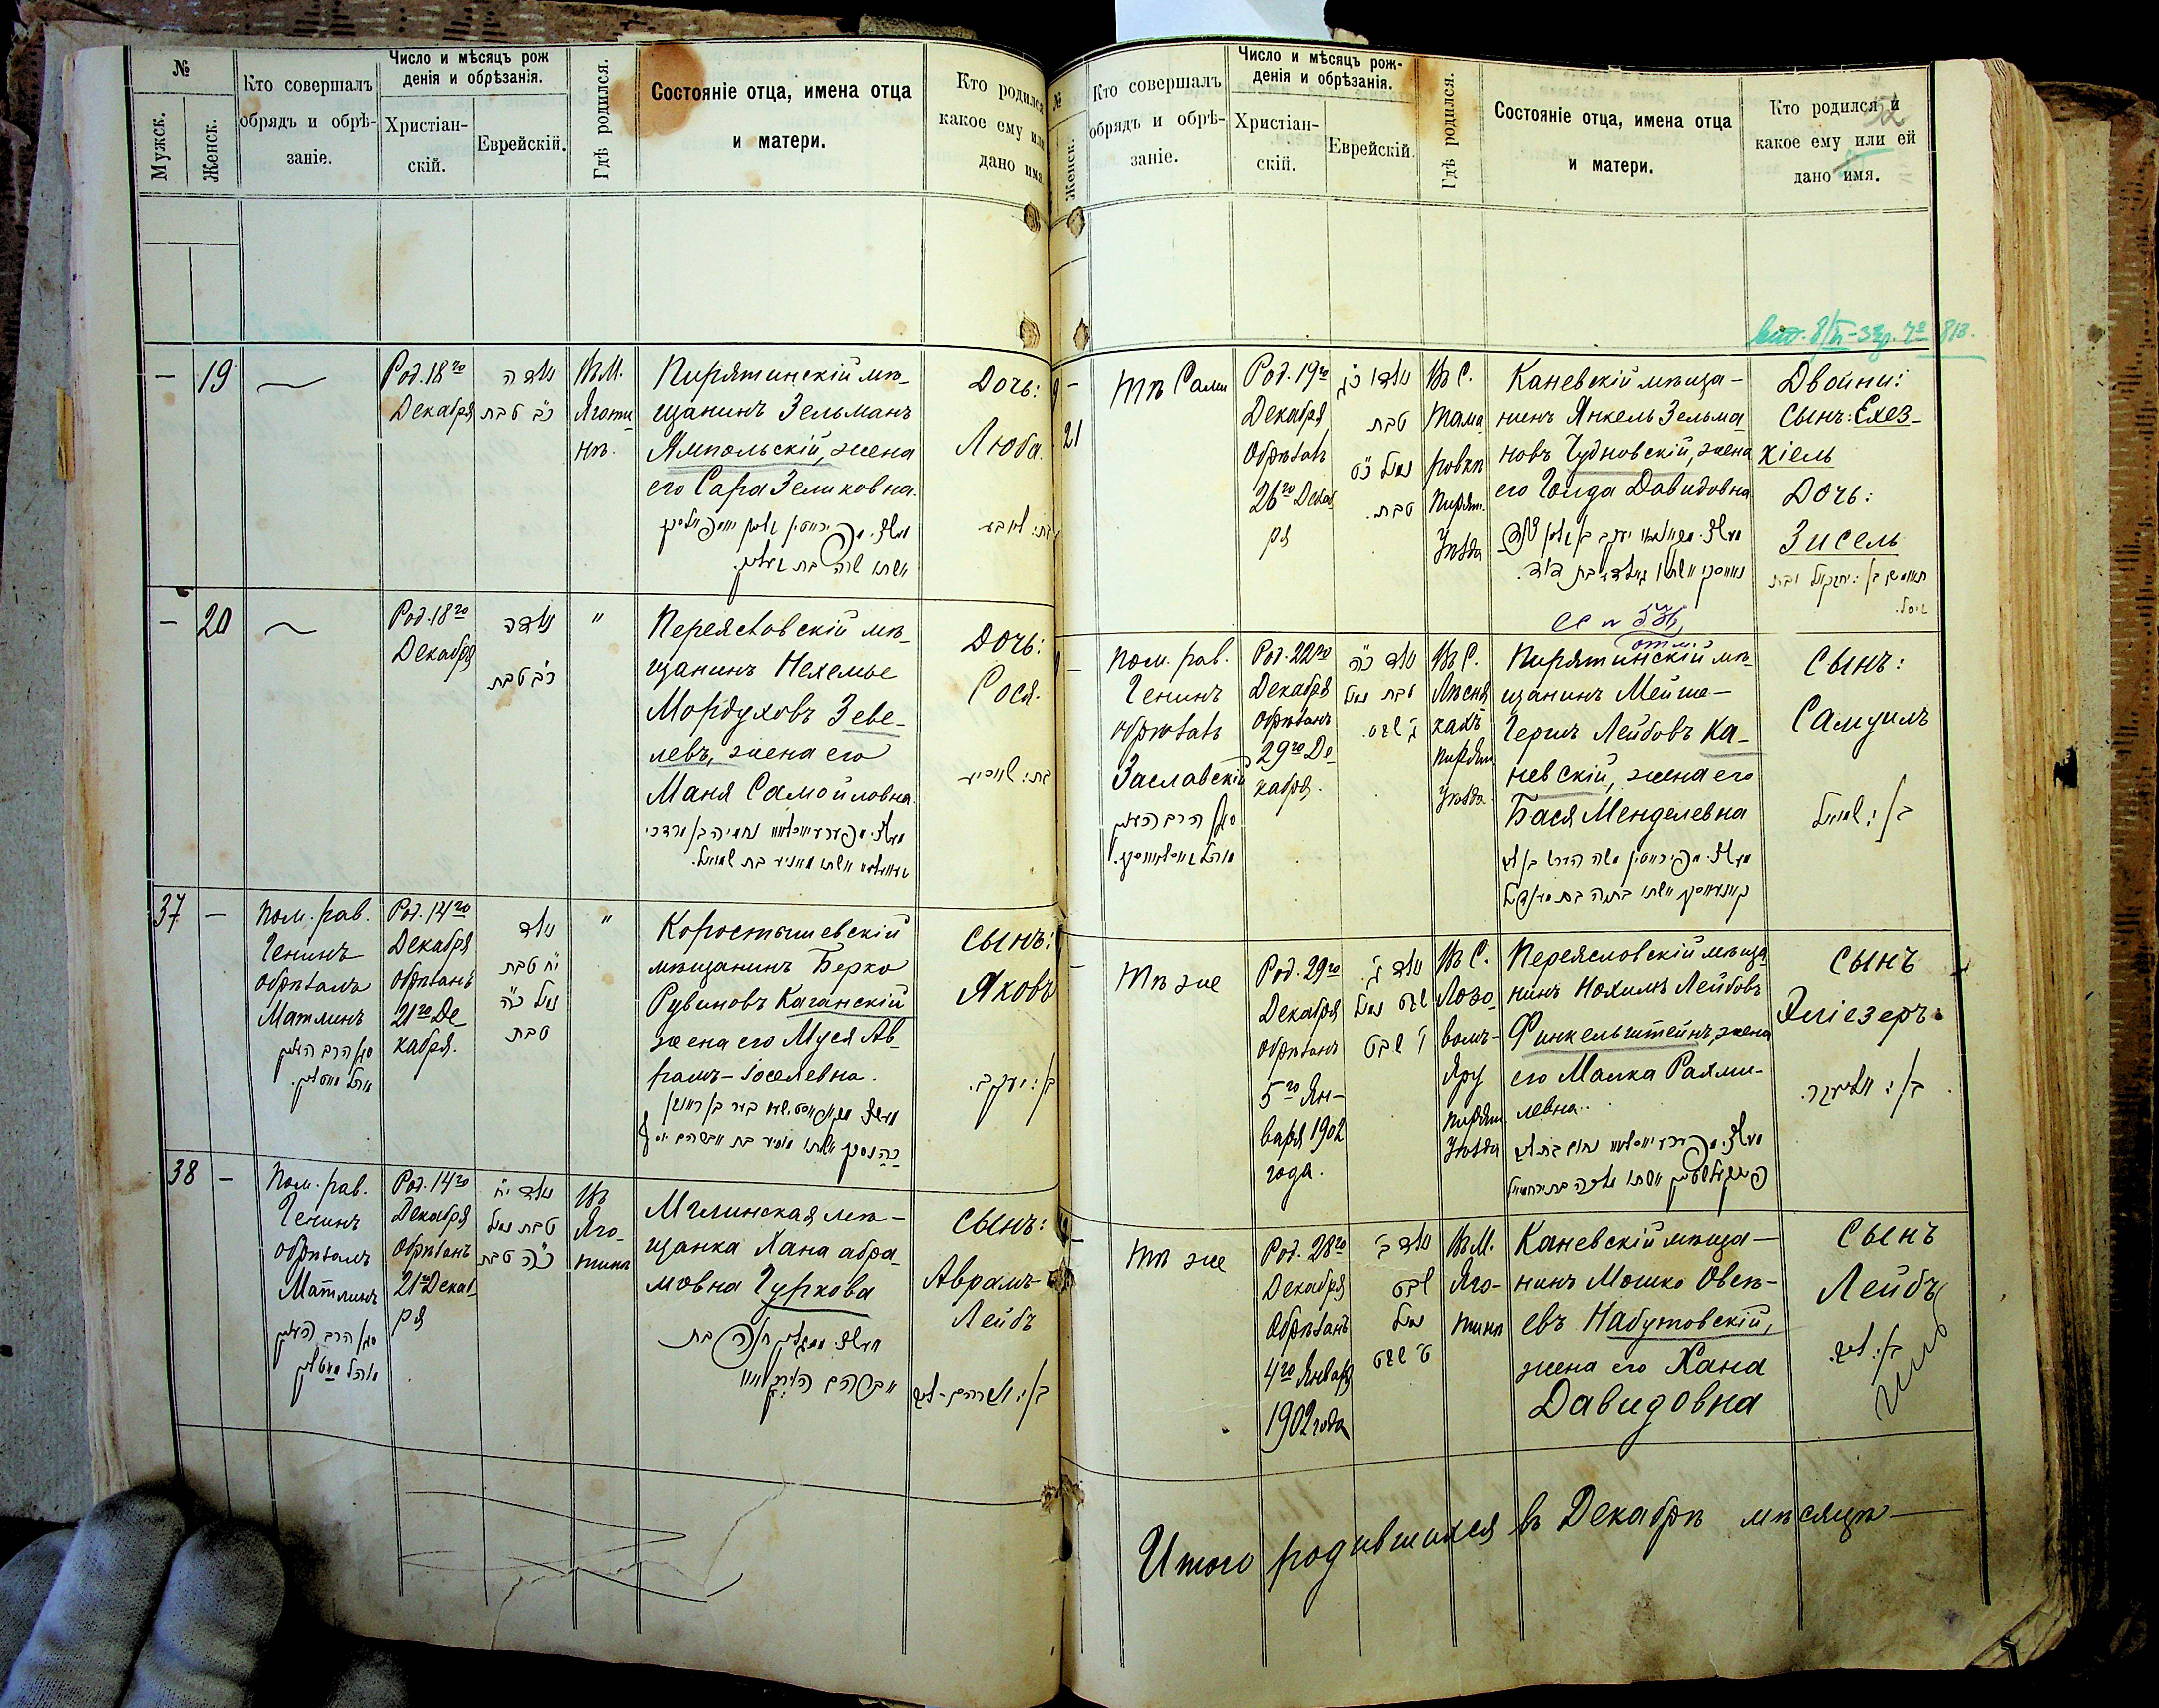 №
Мужск.
Женск.
Кто совершалъ
обрядъ и обрѣ-
заніе.
Число и мѣсяцъ рож
денія и обрѣзанія.
Христіан-
скій.
Еврейскій.
Гдѣ родился.
Состояніе отца, имена отца
и матери.
Кто родился
какое ему или
дано имя.
—
19
Род. 18го
Декабря
נולדה
כ״ב טבת
Въ М.
Яготи
нѣ.
Пирятинскій мѣ-
щанинъ Зельманъ
Ямпольскій, жена
его Сара Зеликовна.
Дочь:
Люба.
—
20
Род. 18го
Декабря
נולדה
כ״ב טבת
"
Переяславскій мѣ-
щанинъ Нехемье
Мордуховъ Зеве-
левъ, жена его
Маня Самойловна.
Дочь:
Сося.
37
—
Пом. рав.
Генинъ
обрѣзалъ
Матлинъ
Род. 14го
Декабря
Обрѣзанъ
21го Де-
кабря.
נולד
י״ח טבת
נמול כ״ה
טבת
"
Коростышевскій
мѣщанинъ Берко
Рувиновъ Каганскій
жена его Муся Ав-
рамъ-Іоселевна.
Сынъ:
Яковъ
בן: יעקב.
38
—
Пом. рав.
Генинъ
обрѣзалъ
Матлинъ
Род. 14го
Декабря
Обрѣзанъ
21го Декаб
ря
נולד י״ח
טבת נמול
כ״ה טבת
Въ
Яго-
тинѣ
Мглинская мѣ-
щанка Хана абра-
мовна Гуркова
Сынъ:
Аврамъ-
Лейбъ
בן: אברהם-לייב
№
Женск.
Кто совершалъ
обрядъ и обрѣ-
заніе.
Число и мѣсяцъ рож-
денія и обрѣзанія.
Христіан-
скій.
Еврейскій.
Гдѣ родился.
Состояніе отца, имена отца
и матери.
Кто родился и
какое ему или ей
дано имя.
52
—
21
Тѣ Сами
Род. 19го
Декабря
Обрѣзанъ
26го Декаб
ря
טבת
טבת.
Въ С.
Тама
ровкѣ
Пирят.
Уѣзда
Каневскій мѣща-
нинъ Янкель Зельма
новъ Чудновскій, жена
его Голда Давидовна
Двойни:
Сынъ: Ехез-
кіель
Дочь:
Зисель
—
Пом. рав.
Генинъ
обрѣзалъ
Заславскій
Род. 22го
Декабря
Обрѣзанъ
29го Де
кабря.
נולד כ״ה
טבת נמול
ג׳ שבט.
Въ С.
Лѣсня
кахъ
Пирят
Уѣзда
Пирятинскій мѣ-
щанинъ Мейше-
Гершъ Лейбовъ Ка-
невскій, жена его
Бася Менделевна
Сынъ:
Самуилъ
בן: שמואל
—
Тѣ же
Род. 29го
Декабря
Обрѣзанъ
5го Ян-
варя 1902
года.
נולד ג׳
שבט נמול
י׳ שבט
Въ С.
Лозо-
вомъ-
Яру
Пирят
Уѣзда
Переясловскій мѣща
нинъ Нохимъ Лейбовъ
Финкельштейнъ, жена
его Малка Рахми-
левна.
Сынъ
Эліезеръ.
בן: אליעזר.
—
Тѣ же
Род. 28го
Декабря
Обрѣзанъ
4го Января
1902 года
נולד ב׳
שבט
נמול
ט׳ שבט
Въ М.
Яго-
тинѣ
Каневскій мѣща-
нинъ Мошко Овсѣ-
евъ Набутовскій,
жена его Хана
Давидовна
Сынъ
Лейбъ
בן: לייב.
Итого родившихся въ Декабрѣ мѣсяцѣ —